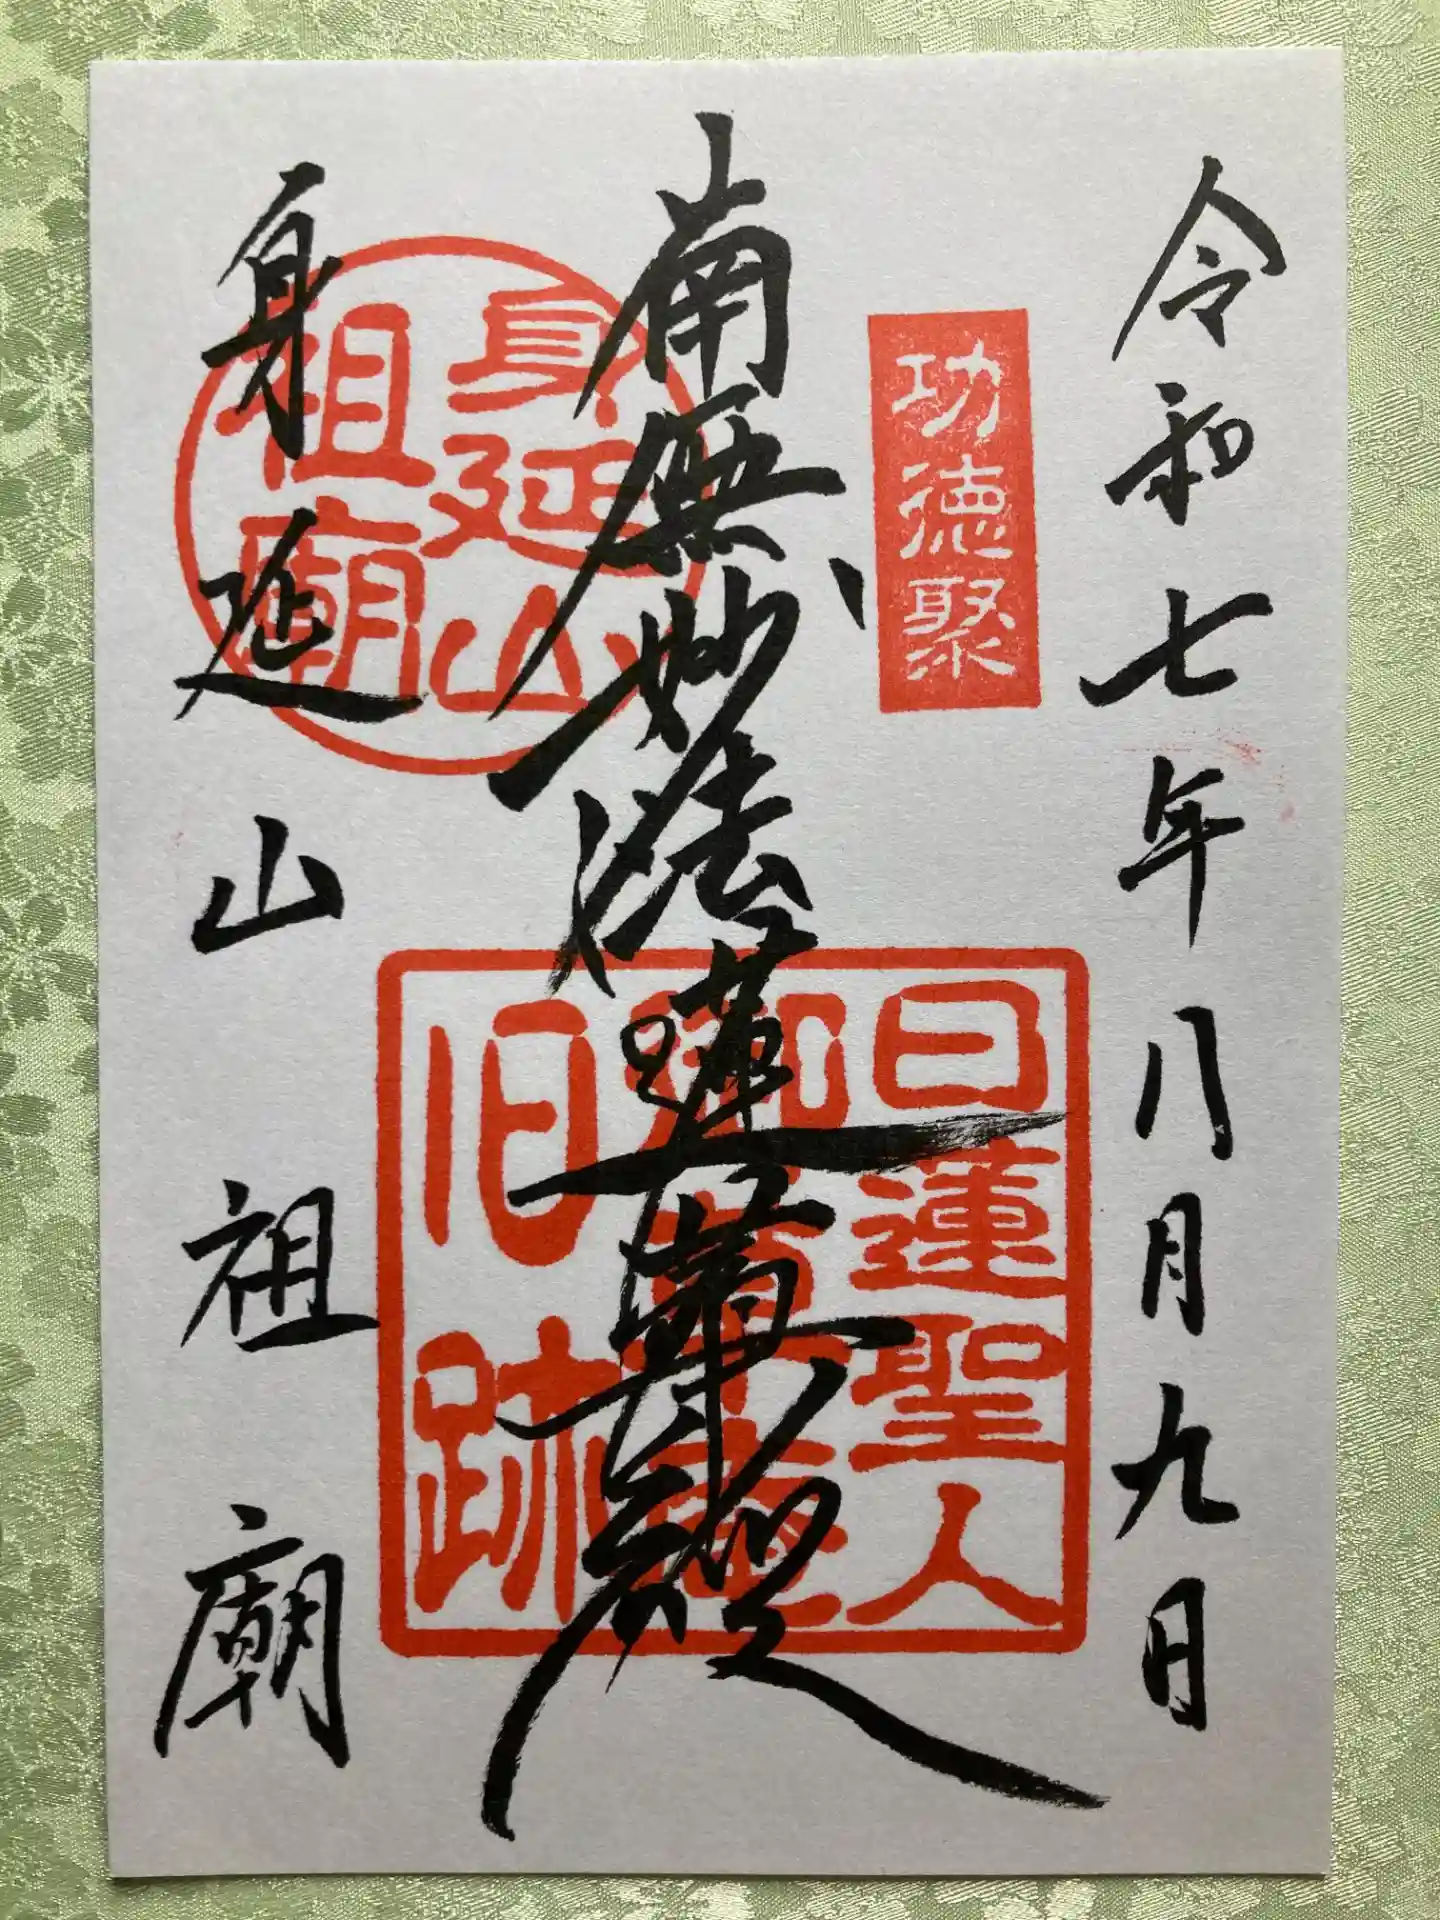 令和七年八月九日
功徳聚
南無妙法蓮華経
日蓮聖人
御草庵
旧跡
身延山
祖廟
身延山祖廟